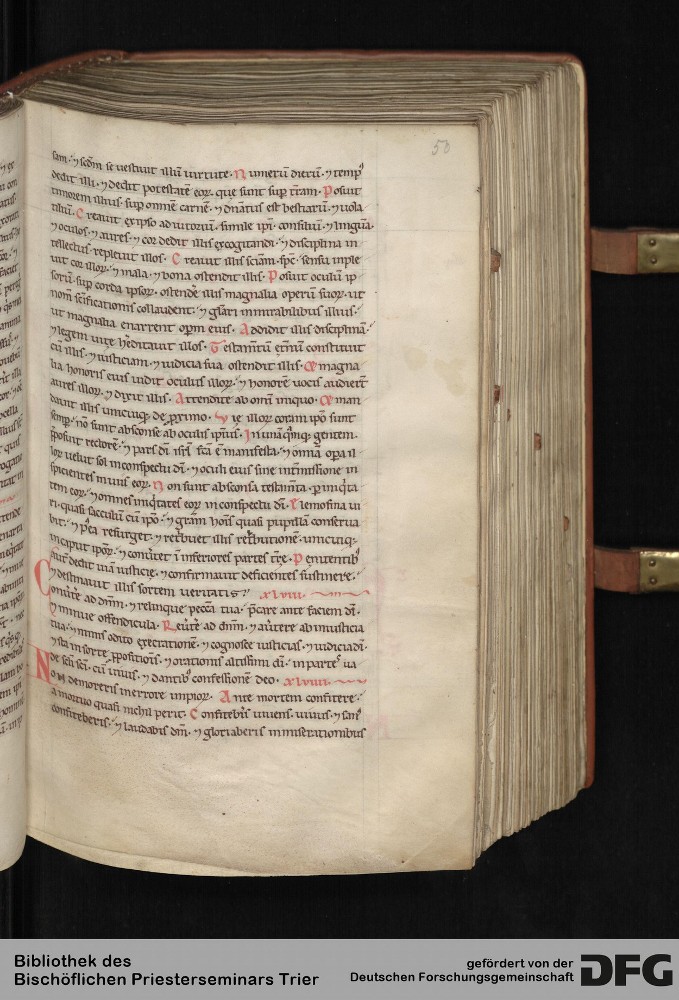 50
sam · ⁊ scdm se vestiuit illū uirtute · Numerū dierū · ⁊ temp᷒
dedit illi · ⁊ dedit potestatē eoꝝ que sunt sup trram · Posuit
timorem illius sup omnē carnē · ⁊ dn̄atus est bestiarū · ⁊ uola
tiliū · Creauit ex ipso adiutoriū simile ipi · consiliū · ⁊ linguā
⁊ oculos · ⁊ aures · ⁊ cor dedit illis excogitandi · ⁊ disciplina in
tellectus repleuit illos · Creauit illis sciam sp̄c · sensu imple
uit cor illoꝝ · ⁊ mala · ⁊ bona ostendit illis · Posuit oculū ip
soꝝ sup corda ipsoꝝ · ostende illis magnalia operū suoꝝ · ut
nom̄ sc̄ificationis collaudent · ⁊ glari in mirabilibus illius ·
ut magnalia enarrent opm̄ eius · Addidit illis disciplinā ·
⁊ legem uite h̄editauit illos · Testamtū etn̄um constituit
cū illis · ⁊ iusticiam · ⁊ iudicia sua ostendit illis · Et magna
lia honoris eius uidit oculus illoꝝ · ⁊ honorē uocis audiert
aures illoꝝ · ⁊ dixit illis · Attendite ab omni iniquo · Et man
dauit illis unicuiq; de proximo · Vie illoꝝ coram ipo sunt
semp · no sunt absconse ab oculis ipsius · In unāq̄mq; gentem
p̄posuit rectorē · ⁊ pars dī isrl̄ fca ē manifesta · ⁊ omnia opera il
loꝝ uelut sol in conspectu dī · ⁊ oculi eius sine int̄missione in
spicientes in uiis eoꝝ · Non sunt absconsa testam̄ta p iniq̄ta
tem eoꝝ · ⁊ omnes iniq̄tates eoꝝ in conspectu dī · Elemosina ui
ri · quasi sacculus cū ipo · ⁊ gram̄ hois quasi pupillā conserua
bit · ⁊ p̄ea resurget · ⁊ ret̄buet illis ret̄butionē · unicuiq;
in caput ipoꝝ · ⁊ conu̅tet i inferiores partes t̄re · Penitentib᷒
aut dedit uiā iusticie · ⁊ confirmauit deficientes sustinere ·
⁊ destinauit illis sortem ueritatis · xlviii
Conu̅te ad dn̄m · ⁊ relinque pecc̄a tua · p̄care ante faciem dī ·
⁊ minue offendicula · Reu̅te ad dn̄m · ⁊ au̅tere ab iniusticia
tua · ⁊ nimis odito execrationē · ⁊ cognosce iusticias · ⁊ iudicia dī ·
⁊ sta in sorte p̄positionis · ⁊ orationis altissimi dī · in partes ua
de scli sci · cū uiuis · ⁊ dantib᷒ confessionē deo · xlviiii
Non demoreris in errore impioꝝ · Ante mortem confitere ·
a mortuo quasi nichil perit · Confiteb̄is uiuens · uiuus · ⁊ san᷒
confiteberis · ⁊ laudabis dm̄ · ⁊ gloriaberis in miseritionibus
Bibliothek des
Bischöflichen Priesterseminars Trier
gefördert von der
Deutschen Forschungsgemeinschaft
DFG